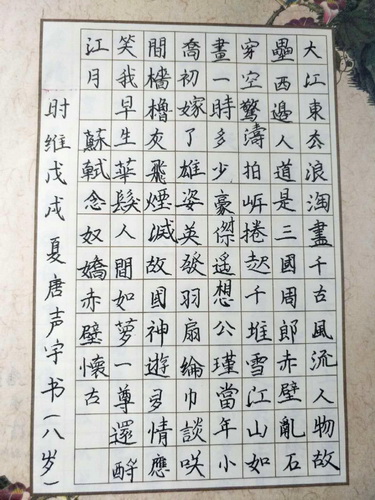 大江東去浪淘盡千古風流人物故
壘西邊人道是三國周郎赤壁亂石
穿空驚濤拍岍捲起千堆雪江山如
畫一時多少豪傑遥想公瑾當年小
喬初嫁了雄姿英發羽扇綸巾談咲
間檣櫓灰飛煙滅故國神遊多情應
笑我早生華髮人間如夢一尊還酹
江月 蘇軾念奴嬌赤壁懷古
时维戊戌夏唐声宇书(八岁)